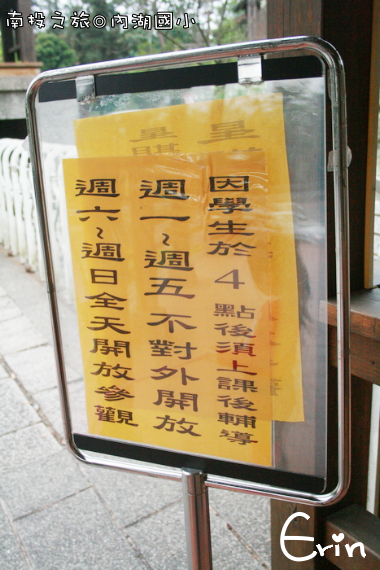 南投之旅◎內湖國小
因學生於4點後須上課後輔導
週一~週五不對外開放
週六~週日全天開放參觀
Erin